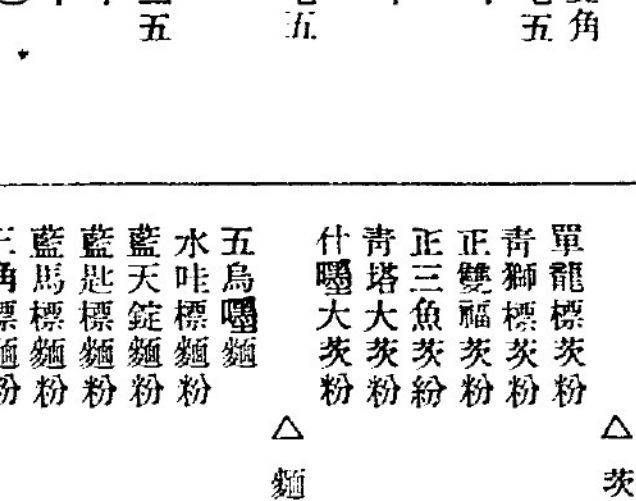 角
五
五
五
△茨
單龍標茨粉
靑獅標茨粉
正雙福茨粉
正三魚茨紛
靑塔大茨粉
什嘜大茨粉
△麵
五鳥嘜麵
水哇標麵粉
藍天錠麵粉
藍匙標麵粉
藍馬標麵粉
角標麵粉